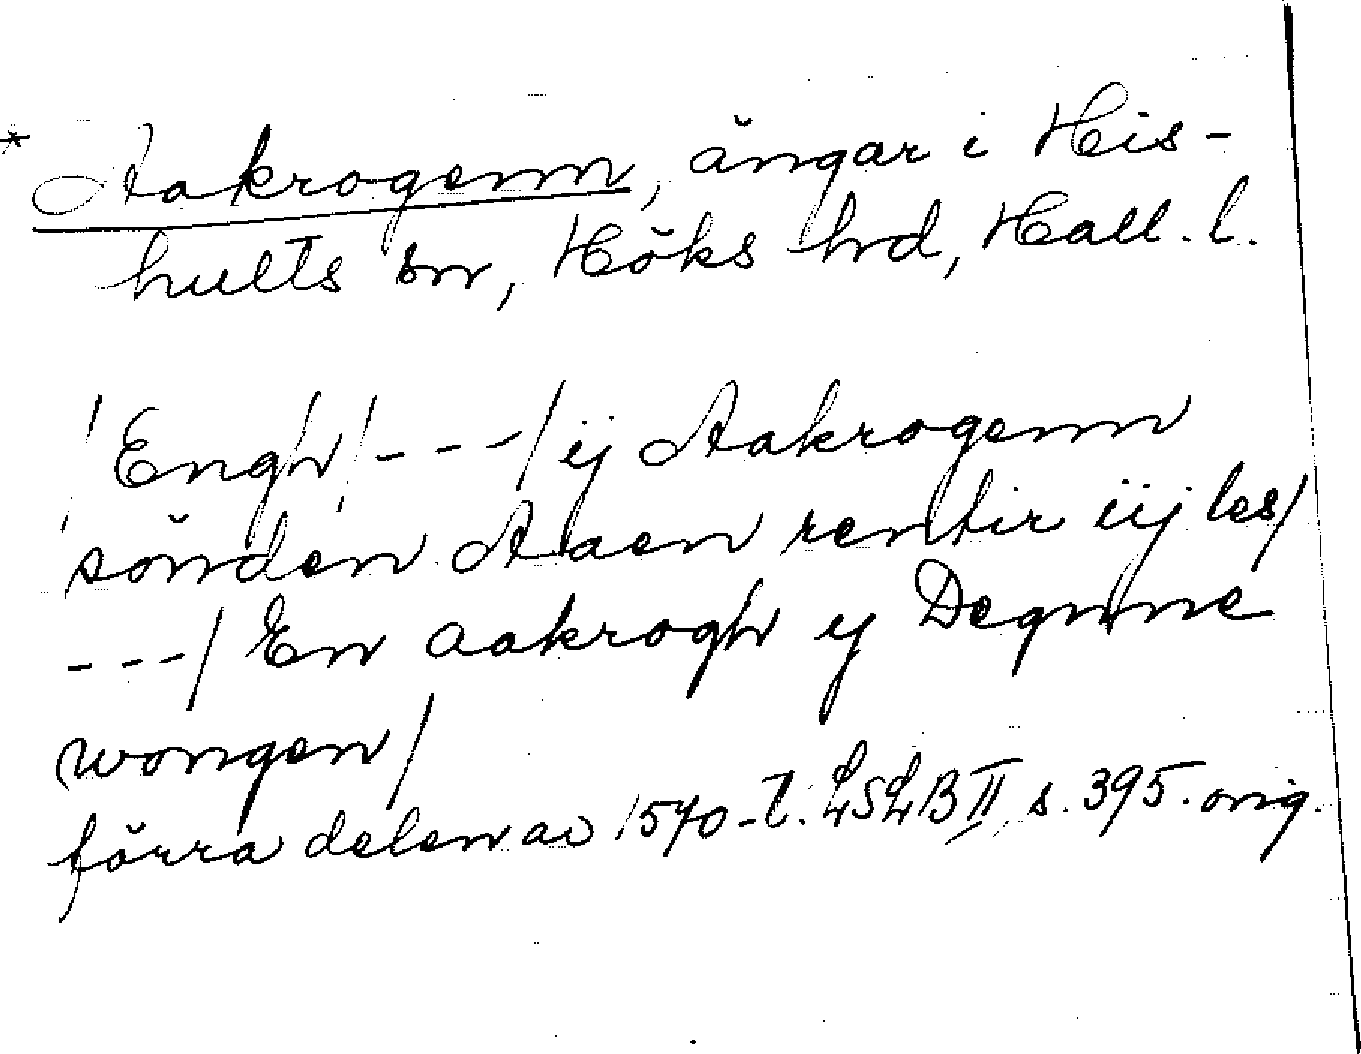 * Aakrogenn, ängar i His-
hults sn, Höks hrd, Hall. l.
/Engh/---/ ij Aakrogenn
sönden Aaen rentir iij les/
---/ En aakrogh ij Degnne
wongen/
förra delen av 1570-t. LSLB II, s. 395. orig.